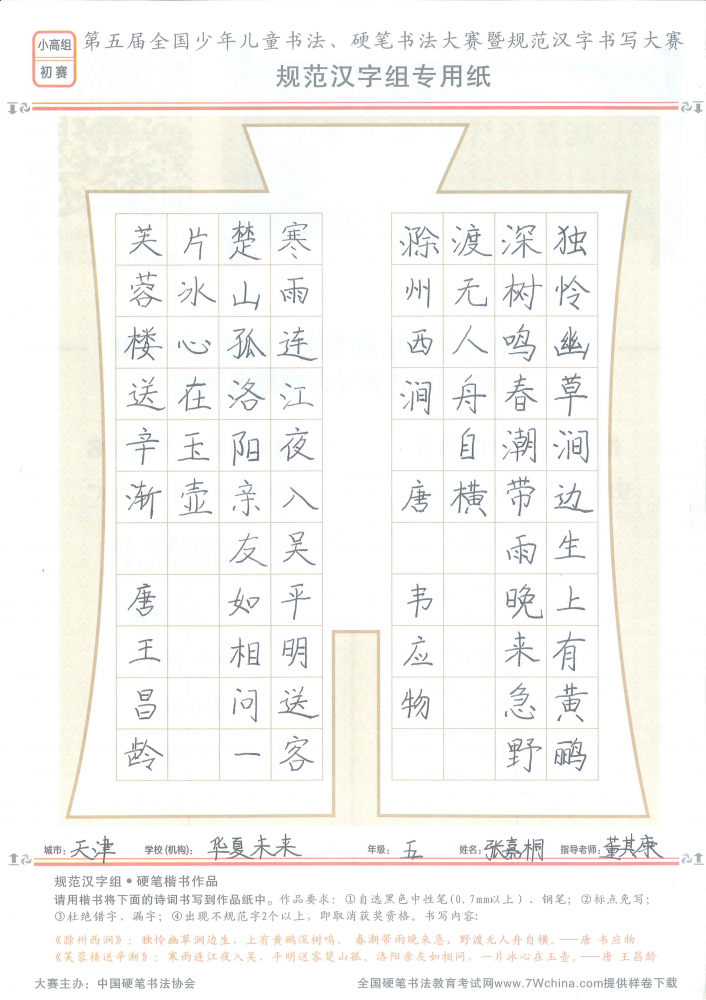 小高组
初赛
第五届全国少年儿童书法、硬笔书法大赛暨规范汉字书写大赛
规范汉字组专用纸
独怜幽草涧边生上有黄鹂
深树鸣春潮带雨晚来急野
渡无人舟自横
滁州西涧 唐 韦应物
寒雨连江夜入吴平明送客
楚山孤洛阳亲友如相问一
片冰心在玉壶
芙蓉楼送辛渐 唐王昌龄
城市：天津 学校(机构)：华夏未来 年级：五 姓名：张嘉桐 指导老师：董其康
规范汉字组•硬笔楷书作品
请用楷书将下面的诗词书写到作品纸中。作品要求：①自选黑色中性笔(0.7mm以上)、钢笔；②标点免写；
③杜绝错字、漏字；④出现不规范字2个以上，即取消获奖资格。书写内容：
《滁州西涧》：独怜幽草涧边生，上有黄鹂深树鸣。春潮带雨晚来急，野渡无人舟自横。——唐 韦应物
《芙蓉楼送辛渐》：寒雨连江夜入吴，平明送客楚山孤。洛阳亲友如相问，一片冰心在玉壶。——唐 王昌龄
大赛主办：中国硬笔书法协会 全国硬笔书法教育考试网www.7Wchina.com提供样卷下载